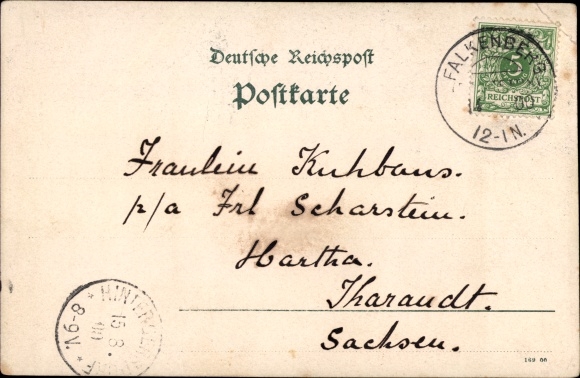 Deutsche Reichspost
Postkarte
FALKENBERG
5
REICHSPOST
12-1N.
Fraulein Kuhbaus.
p/a Frl Scharstein.
Hartha.
Tharandt.
Sachsen.
15 8
00
8-9V.
169 06